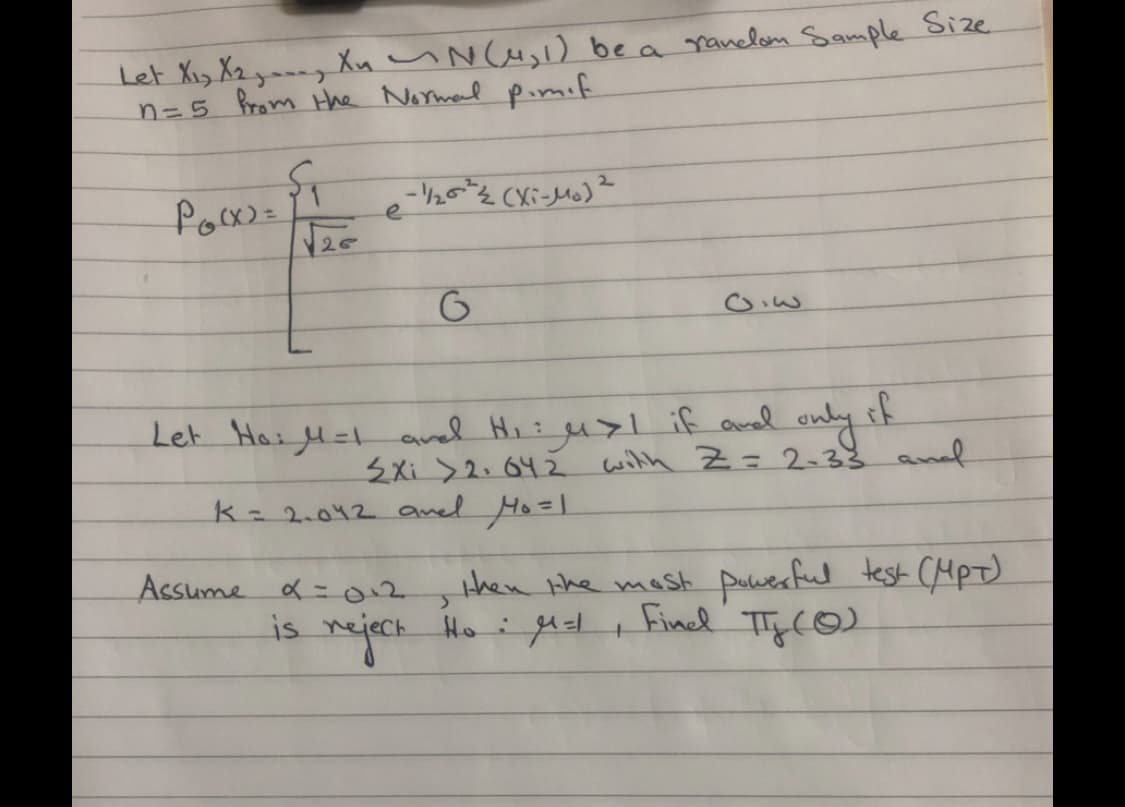 Let X₁, X₂, ...., Xn ~ N(μ,1) be a random Sample Size
n=5 from the Normal p.m.f
Pθ(x) = { 1/√2σ e^-1/2σ² Σ(Xi-μ₀)²
0 O.W
Let H₀: μ=1 and H₁: μ>1 if and only if
ΣXi > 2.042 with Z = 2.33 and
K = 2.042 and μ₀=1
Assume α = 0.2, then the most powerful test (MPT)
is reject H₀ : μ=1, Find (θ)